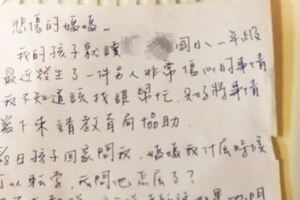 悲傷的媽媽~
我的孩子就讀 國小一年級
最近發生了一件另人非常傷心的事情
我不知道該找誰幫忙.只好將事情
寫下來請教育局協助.
8日孩子回家問我,媽媽我什麼時候
可以轉學,我問他怎麼了?